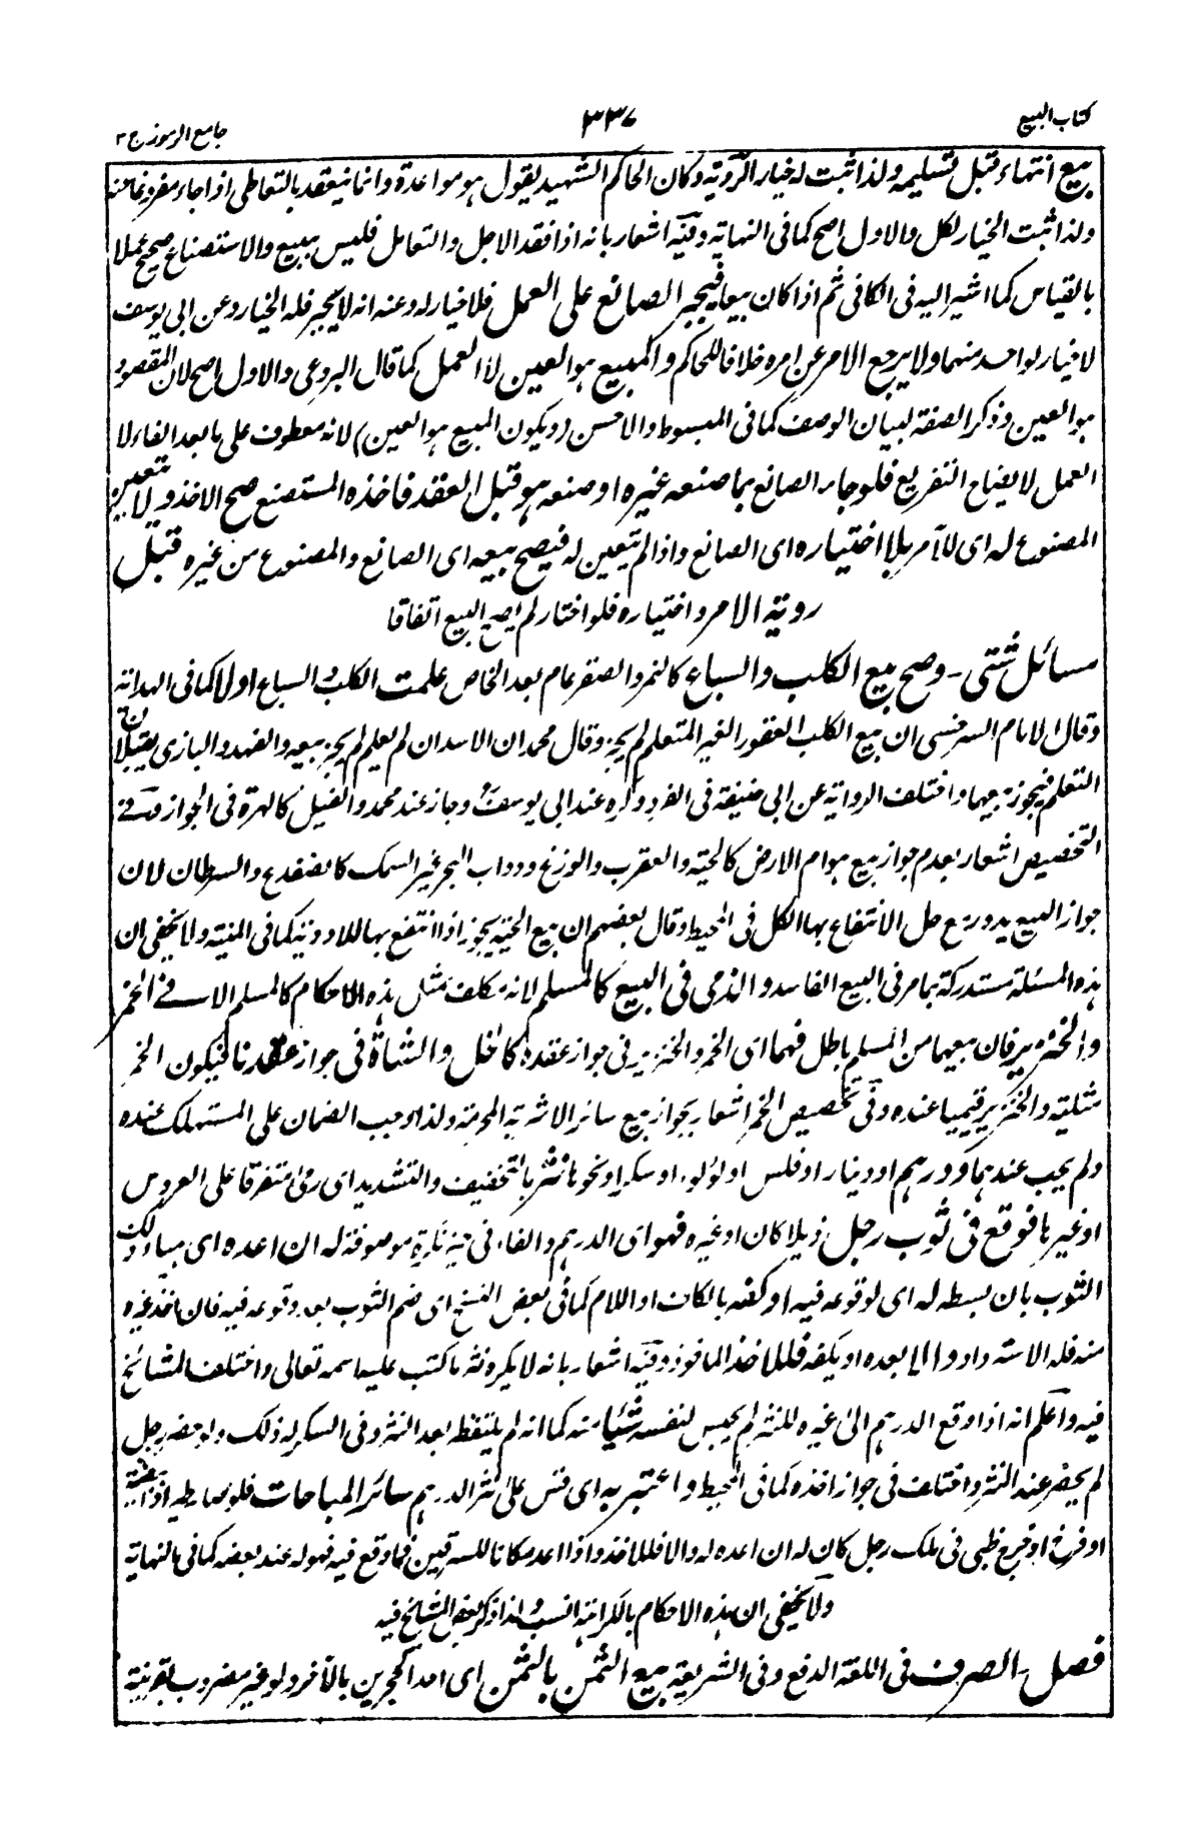 كتاب البيع
٣٣٧
جامع الرموز ج ٢
بيع انتهاء قبل تسليمه ولذا ثبت له خيار الرؤية وكان الحاكم الشهيد يقول هو مواعدة وانما ينعقد بالتعاطى اذا جاء مفروغا منه
ولذا ثبت الخيار لكل والاول اصح كما فى النهاية وفيه اشعار بانه اذا فقد الاجل والتعامل فليس ببيع والاستصناع صحيح عملا
بالقياس كما اشير اليه فى الكافى ثم اذا كان بيعا فيجبر الصانع على العمل فلا خيار له وعنه انه لا يجبر فله الخيار وعن ابى يوسف
لا خيار لواحد منهما ولا يرجع الامر عن امره خلافا للحاكم والمبيع هو العين لا العمل كما قال البردعى والاول اصح لان المقصود
هو العين وذكر الصنعة لبيان الوصف كما فى المبسوط والاحسن (ويكون المبيع هو العين) لانه معطوف على ما بعد الفاء لا
العمل لايضاح التفريع فلو جاء الصانع بما صنعه غيره او صنعه هو قبل العقد فاخذه المستصنع صح الاخذ ولا يتعين
المصنوع له اى للآمر بلا اختياره اى الصانع واذا لم يتعين له فيصح بيعه اى الصانع والمصنوع من غيره قبل
روية الامر واختياره فلو اختار لم يصح البيع اتفاقا
مسائل شتى - وصح بيع الكلب والسباع كالنمر والصقر عام بعد الخاص علمت الكلب والسباع او لا كما فى الهداية
وقال الامام السرخسى ان بيع الكلب العقور الغير المتعلم لم يجز وقال محمد ان الاسد ان لم يعلم لم يجز بيعه والفهد والبازى يقبلان
التعلم فيجوز بيعهما واختلف الرواية عن ابى حنيفة فى القرد وكره عند ابى يوسف وجاز عند محمد والفيل كالهرة فى الجواز وفى
التخصيص اشعار بعدم جواز بيع هوام الارض كالحية والعقرب والوزغ ودواب البحر غير السمك كالضفدع والسرطان لان
جواز البيع يدور مع حل الانتفاع بها الكل فى المحيط وقال بعضهم ان بيع الحية يجوز اذا انتفع بها للادوية كما فى المنية ولا يخفى ان
هذه المسئلة مستدركة بما مر فى البيع الفاسد والذمى فى البيع كالمسلم لانه مكلف بمثل هذه الاحكام كالمسلم الا فى الخمر
والخنزير فان بيعهما من المسلم باطل فهما اى الخمر والخنزير فى جواز عقده كالخل والشاة فى جواز عقدنا فيكون الخمر
مثلية والخنزير قيميا عنده وفى تخصيص الخمر اشعار بجواز بيع سائر الاشربة المحرمة ولذا وجب الضمان على المستهلك عنده
ولم يجب عندهما ودرهم او دينار او فلس او لؤلؤ او سكر او نحوها نثر بالتخفيف والتشديد اى رمى متفرقا على العروس
او غيرها فوقع فى ثوب رجل ذيلا كان او غيره فهو اى الدرهم والفاء فى حيز نكرة موصوفة له ان اعده اى هيأ ذلك
الثوب بان بسطه له اى لوقوعه فيه او كفه بالكاف او اللام كما فى بعض النسخ اى ضم الثوب بعد وقوعه فيه فان اخذ غيره
منه فله الاسترداد وان لم يعده او يكفه فللآخذ الماخوذ وفيه اشعار بانه لا يكره نثر ما كتب عليه اسمه تعالى واختلف المشائخ
فيه واعلم انه اذا وقع الدرهم الى غيره للنثر لم يحبس لنفسه شيئا منه كما انه لم يلتقط بعد النثر وفى السكر له ذلك ولو حضر رجل
لم يحضر عند النثر واختلف فى جواز اخذه كما فى المحيط واعتبر به اى قس على نثر الدرهم سائر المباحات فلو صار طير او بيضته
او فرخ او فرخ ظبى فى ملك رجل كان له ان اعده له والا فللآخذ واذا اعد مكانا للسرقين فما وقع فيه فهو له عند بعضه كما فى النهاية
ولا يخفى ان هذه الاحكام بالكراهة انسب ولذا ذكر بعض المشائخ فيه
فصل - الصرف فى اللغة الدفع وفى الشريعة بيع الثمن بالثمن اى احد الحجرين بالآخر ولو غير مضروب بقرينة